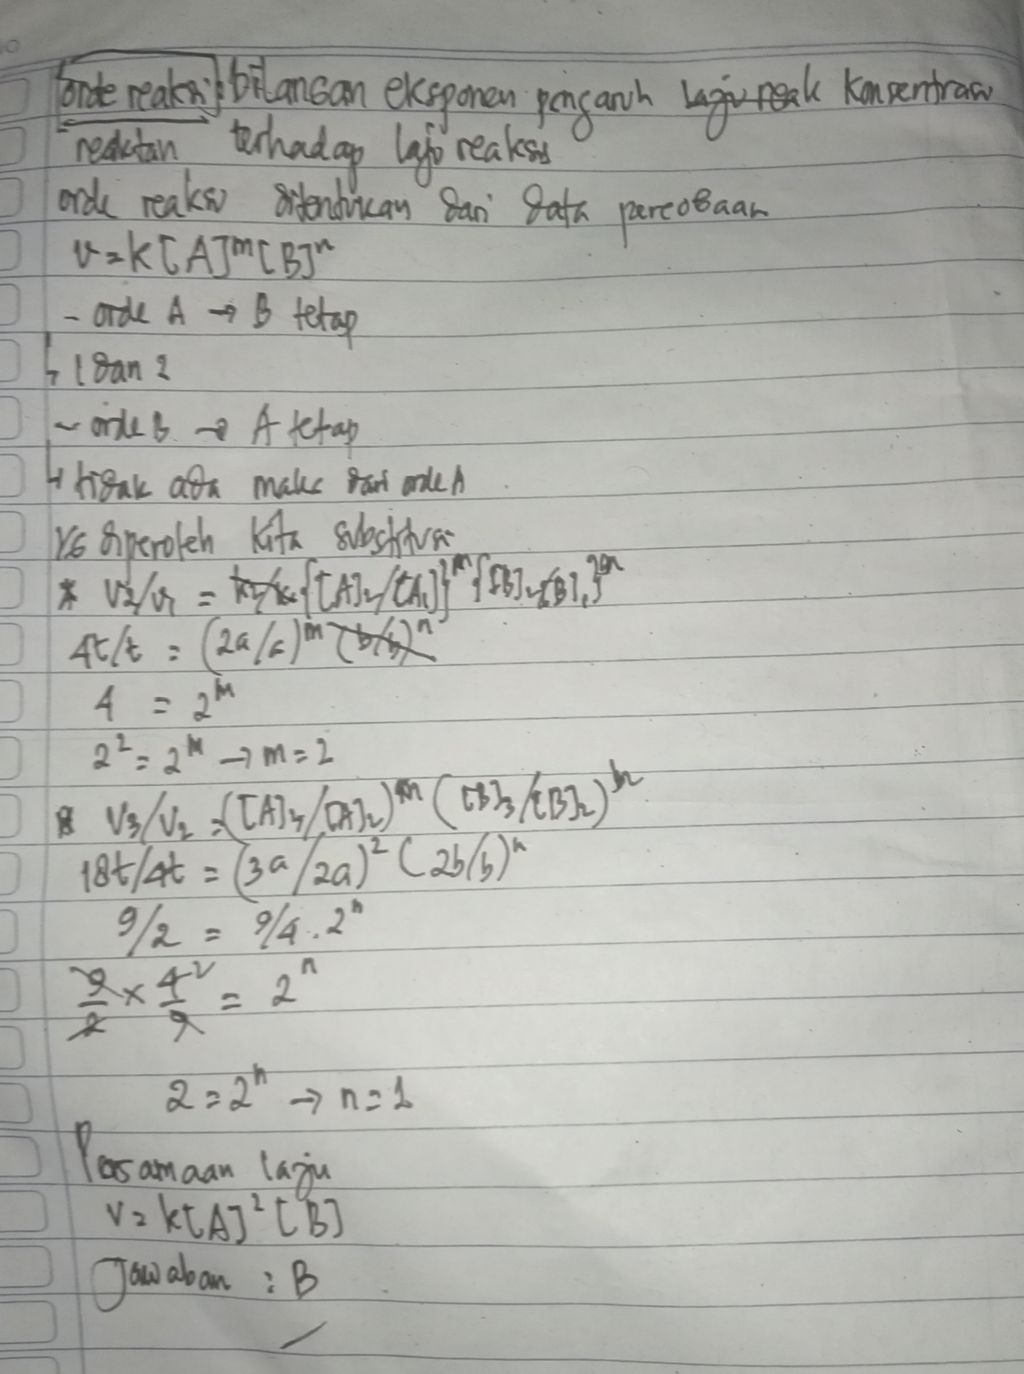 orde reaksi : bilangan eksponen pengaruh laju reak konsentrasi
reaktan terhadap laju reaksi
orde reaksi ditentukan dari data percobaan
v = k[A]^m[B]^n
- orde A → B tetap
↳ 1 dan 2
- orde B → A tetap
↳ tidak ada maka dari orde A
yg diperoleh kita substitusi
* V2/V1 = k2/k1 {[A]2/[A]1}^m {[B]2/[B]1}^n
4t/t = (2a/a)^m (b/b)^n
4 = 2^m
2² = 2^m → m = 2
* V3/V2 = ([A]3/[A]2)^m ([B]3/[B]2)^n
18t/4t = (3a/2a)² (2b/b)^n
9/2 = 9/4 . 2^n
9/2 × 4/9 2 = 2^n
2 = 2^n → n = 1
Persamaan laju
v = k[A]² [B]
Jawaban : B